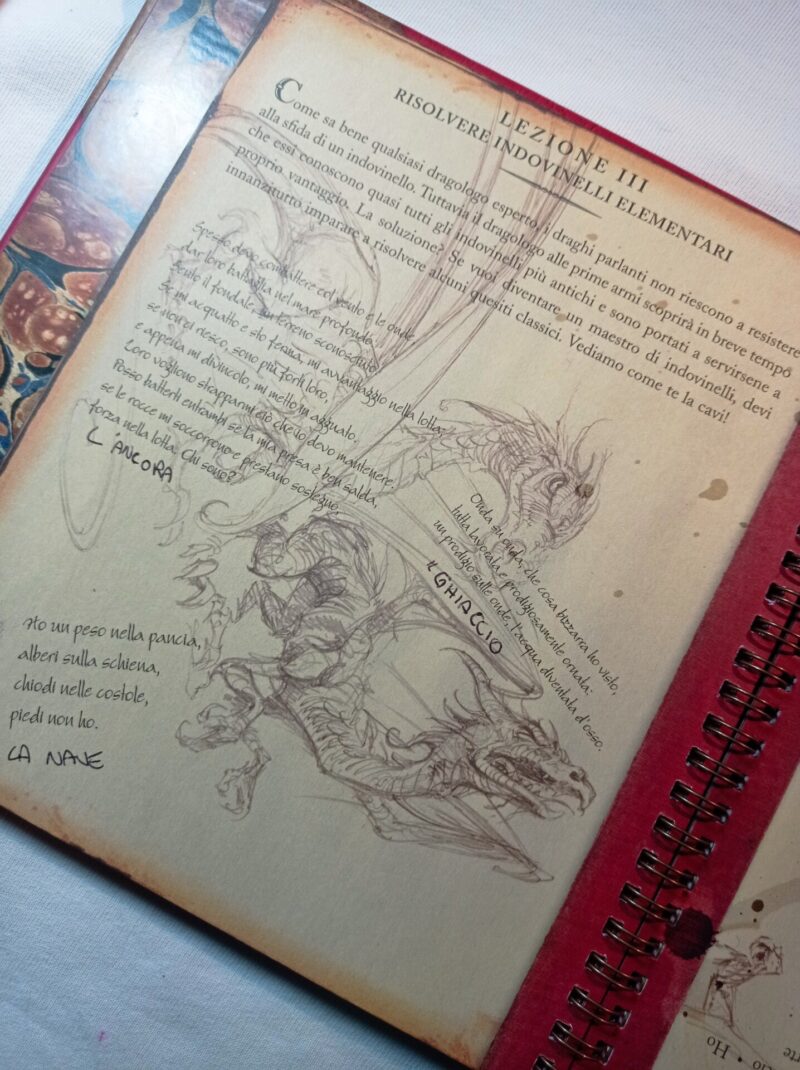 LEZIONE III
RISOLVERE INDOVINELLI ELEMENTARI
Come sa bene qualsiasi dragologo esperto, i draghi parlanti non riescono a resistere
alla sfida di un indovinello. Tuttavia il dragologo alle prime armi scoprirà in breve tempo
che essi conoscono quasi tutti gli indovinelli più antichi e sono portati a servirsene a
proprio vantaggio. La soluzione? Se vuoi diventare un maestro di indovinelli, devi
innanzitutto imparare a risolvere alcuni quesiti classici. Vediamo come te la cavi!
Spesso devo combattere col vento e le onde,
dar loro battaglia nel mare profondo.
Tento il fondale, un terreno sconosciuto.
Se mi acquatto e sto ferma, mi avvantaggio nella lotta;
se non ci riesco, sono più forti loro,
e appena mi divincolo, mi metto in agguato.
Loro vogliono strapparmi ciò che io devo mantenere.
Posso batterli entrambi se la mia presa è ben salda,
se le rocce mi soccorrono e prestano sostegno,
forza nella lotta. Chi sono?
L'ANCORA
Onda su onda, che cosa bizzarra ho visto,
tutta lavorata e prodigiosamente ornata:
un prodigio sulle onde, l'acqua diventata d'osso.
IL GHIACCIO
Ho un peso nella pancia,
alberi sulla schiena,
chiodi nelle costole,
piedi non ho.
LA NAVE
Ho